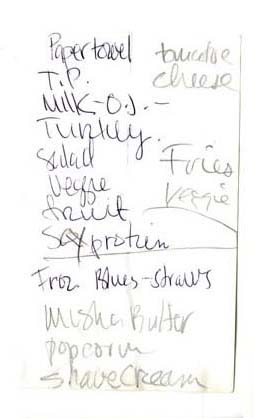 Paper towel
T.P.
Milk - O.J. -
Turkey
Salad
Veggie
fruit
Soy protein
Froz Blues - straws
Misha Butter
popcorn
shave cream
cheese
Fries
Veggie